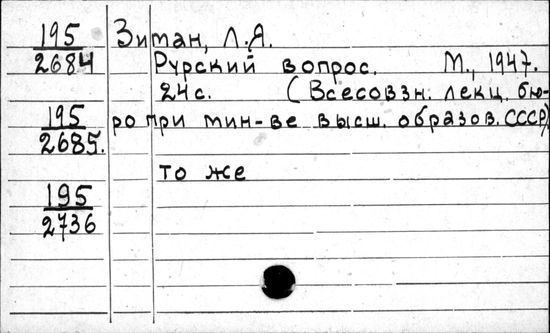 195 Зиман, Л.Я.
2684 Рурский вопрос. М., 1947.
24с. (Всесоюзн. лекц. бю-
195 ро при мин-ве высш. образов. СССР)
2685.
то же
195
2736